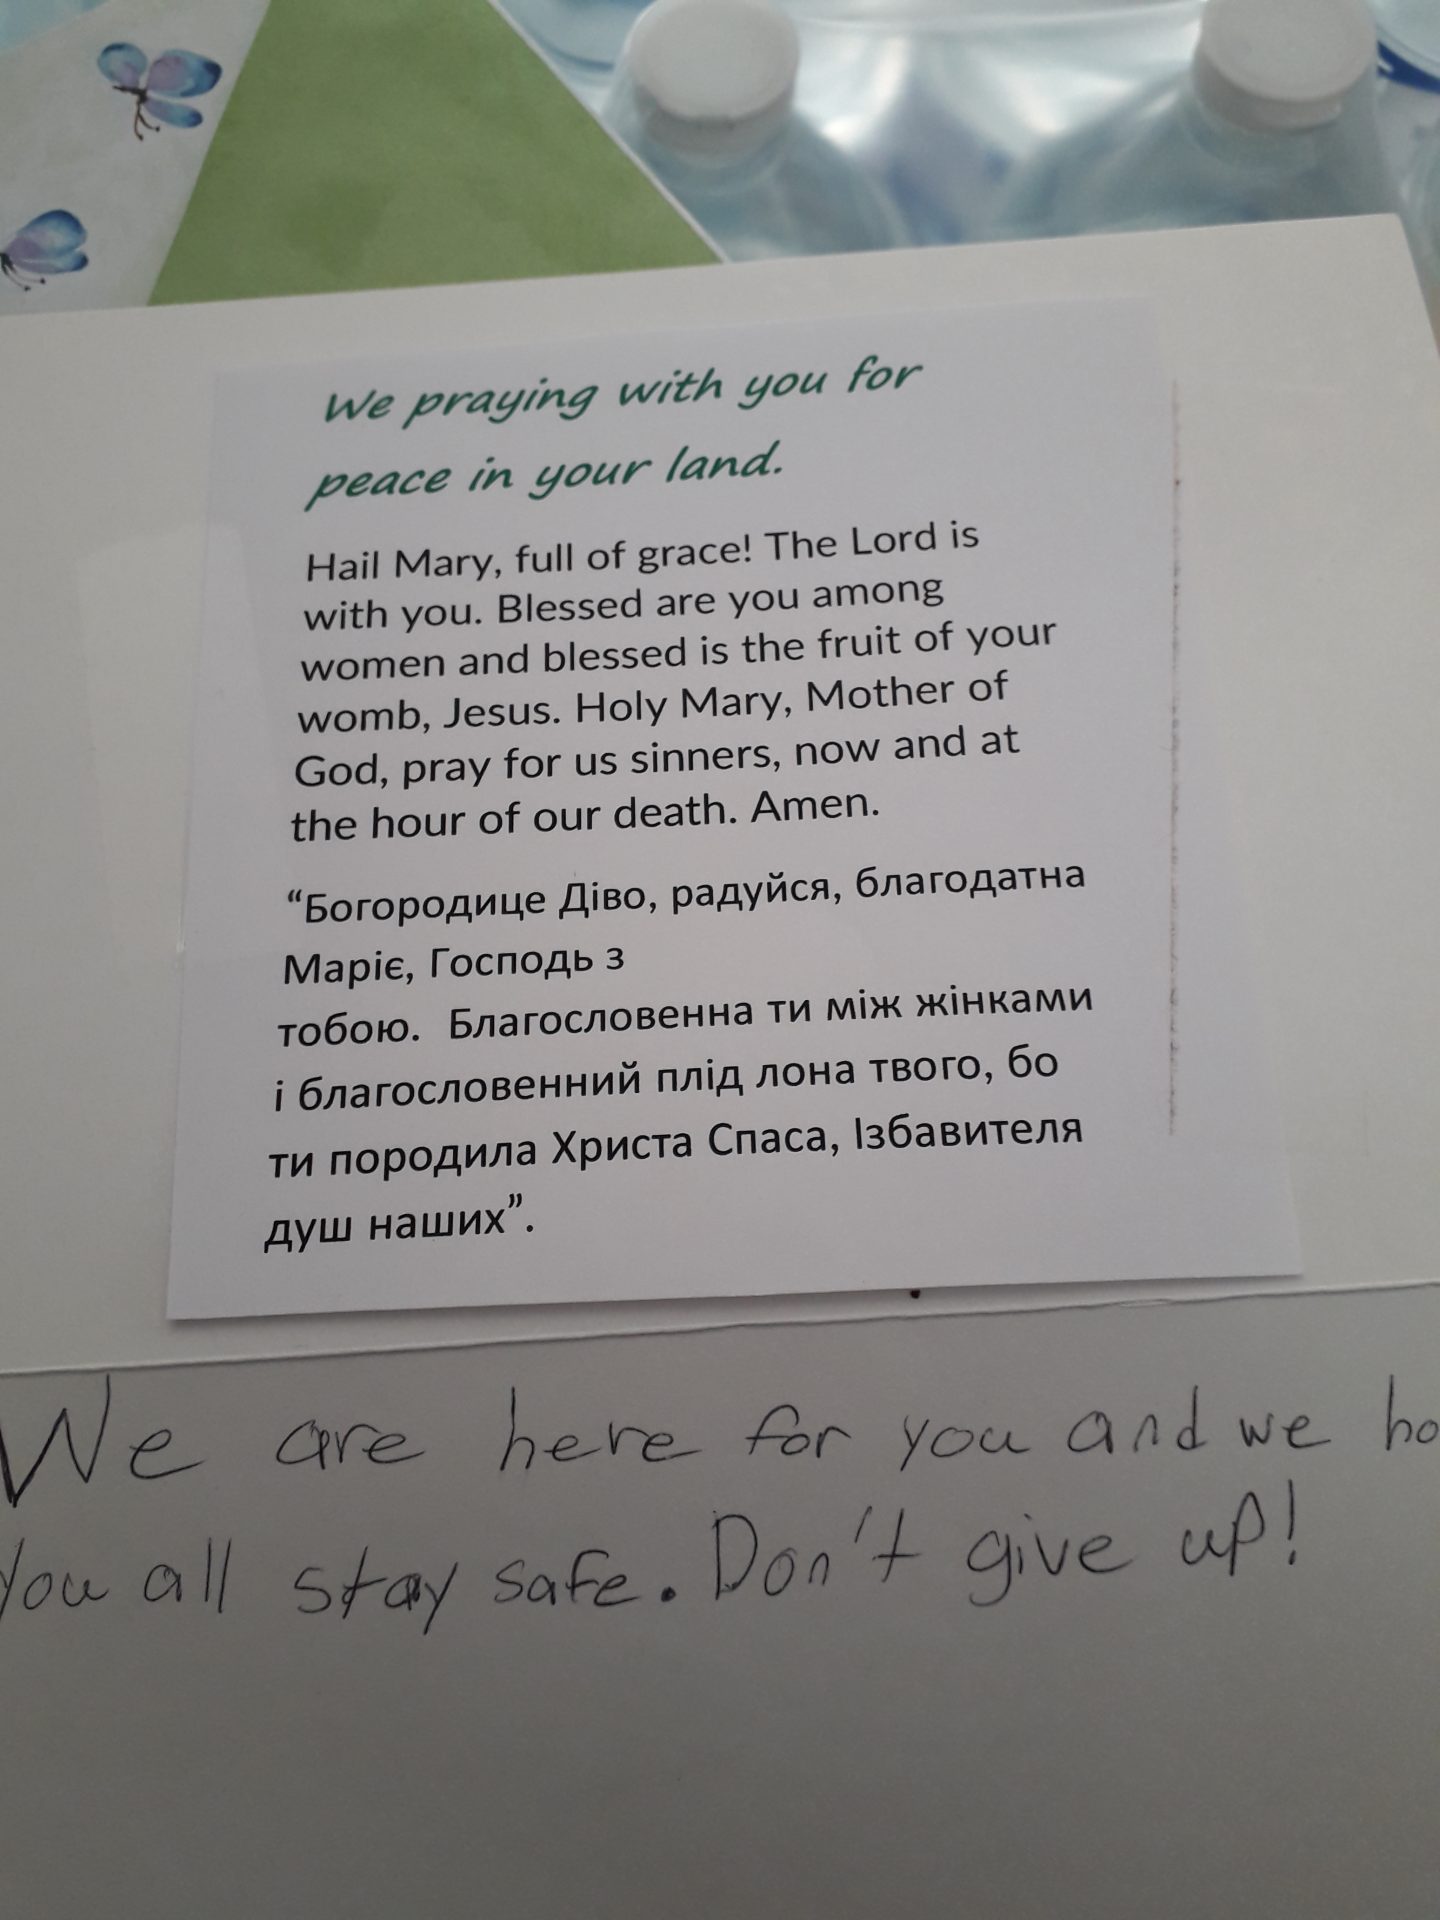 We praying with you for
peace in your land.
Hail Mary, full of grace! The Lord is
with you. Blessed are you among
women and blessed is the fruit of your
womb, Jesus. Holy Mary, Mother of
God, pray for us sinners, now and at
the hour of our death. Amen.
“Богородице Діво, радуйся, благодатна
Маріє, Господь з
тобою. Благословенна ти між жінками
і благословенний плід лона твого, бо
ти породила Христа Спаса, Ізбавителя
душ наших”.
We are here for you and we
You all stay safe. Don't give up!